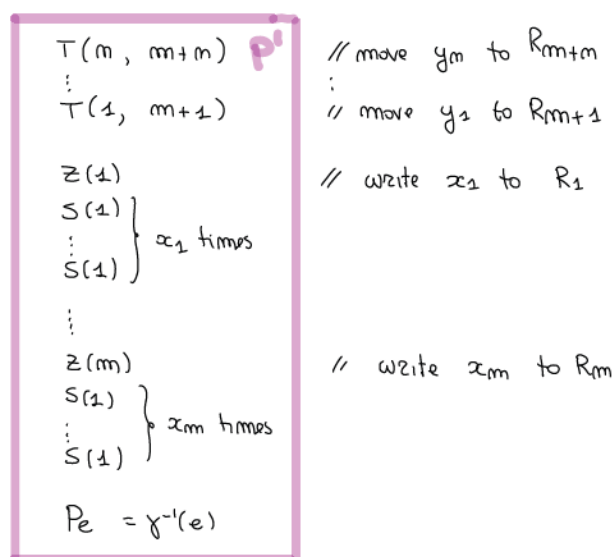 T(n, m+n) P' // move yn to Rm+n
⋮ :
T(1, m+1) // move y1 to Rm+1
Z(1) // write x1 to R1
S(1)
⋮ x1 times
S(1)
⋮
Z(m) // write xm to Rm
S(1)
⋮ xm times
S(1)
Pe = γ⁻¹(e)